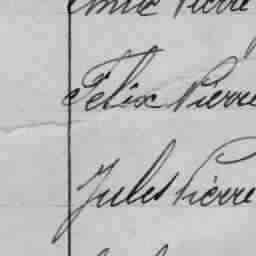 Pierre
Félix Pierre
Jules Pierre